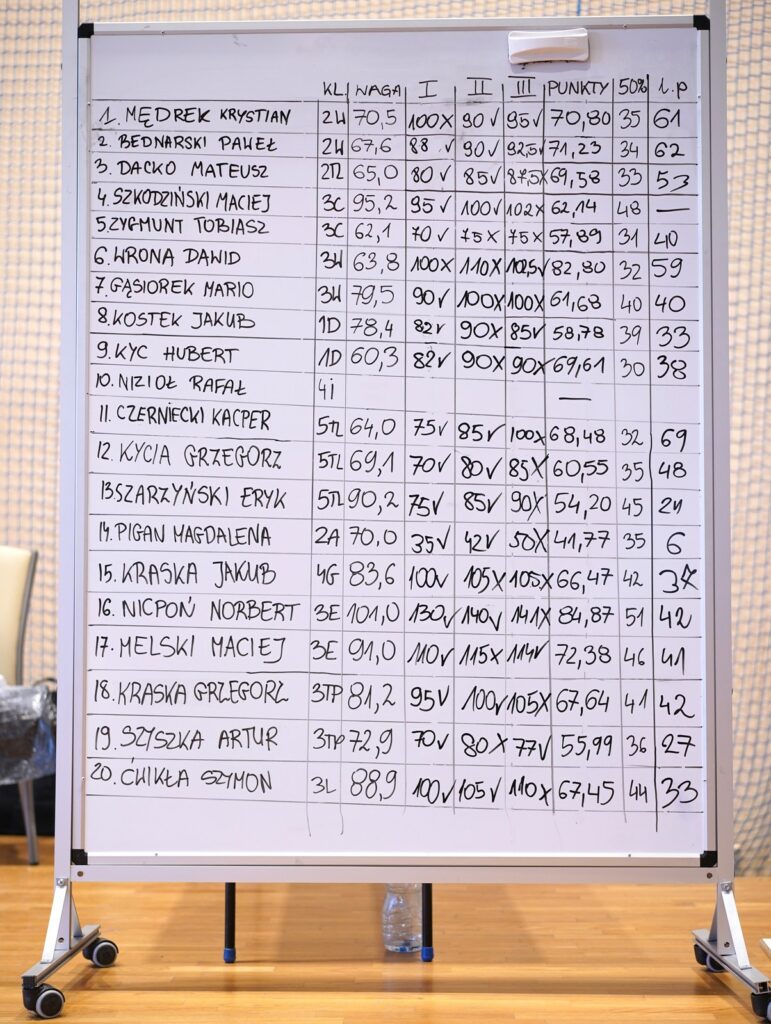 KL. WAGA I II III PUNKTY 50% l.p
1. MĘDREK KRYSTIAN 2W 70,5 100X 90✓ 95✓ 70,80 35 61
2. BEDNARSKI PAWEŁ 2W 67,6 88✓ 90✓ 92,5✓ 71,23 34 62
3. DACKO MATEUSZ 65,0 80✓ 85✓ 87,5X 69,58 33 53
4. SZKODZIŃSKI MACIEJ 3C 95,2 95✓ 100✓ 102X 62,14 48 —
5. ZYGMUNT TOBIASZ 3C 62,1 70✓ 75X 75X 57,89 31 40
6. WRONA DAWID 3W 63,8 100X 110X 102,5✓ 82,80 32 59
7. GĄSIOREK MARIO 3W 79,5 90✓ 100X 100X 61,68 40 40
8. KOSTEK JAKUB 1D 78,4 82✓ 90X 85✓ 58,78 39 33
9. KYC HUBERT 1D 60,3 82✓ 90X 90X 69,61 30 38
10. NIZIOŁ RAFAŁ 4i —
11. CZERNIECKI KACPER 5TL 64,0 75✓ 85✓ 100X 68,48 32 69
12. KYCIA GRZEGORZ 5TL 69,1 70✓ 80✓ 85X 60,55 35 48
13. SZARZYŃSKI ERYK 5TL 90,2 75✓ 85✓ 90X 54,20 45
14. PIGAN MAGDALENA 2A 70,0 35✓ 42✓ 50X 41,77 35 6
15. KRASKA JAKUB 4G 83,6 100✓ 105X 105X 66,47 42
16. NICPOŃ NORBERT 3E 101,0 130✓ 140✓ 141X 84,87 51 42
17. MELSKI MACIEJ 3E 91,0 110✓ 115X 114✓ 72,38 46 41
18. KRASKA GRZEGORZ 3TP 81,2 95✓ 100✓ 105X 67,64 41 42
19. SZYSZKA ARTUR 3TP 72,9 70✓ 80X 77✓ 55,99 36 27
20. ĆWIKŁA SZYMON 3L 88,9 100✓ 105✓ 110X 67,45 44 33